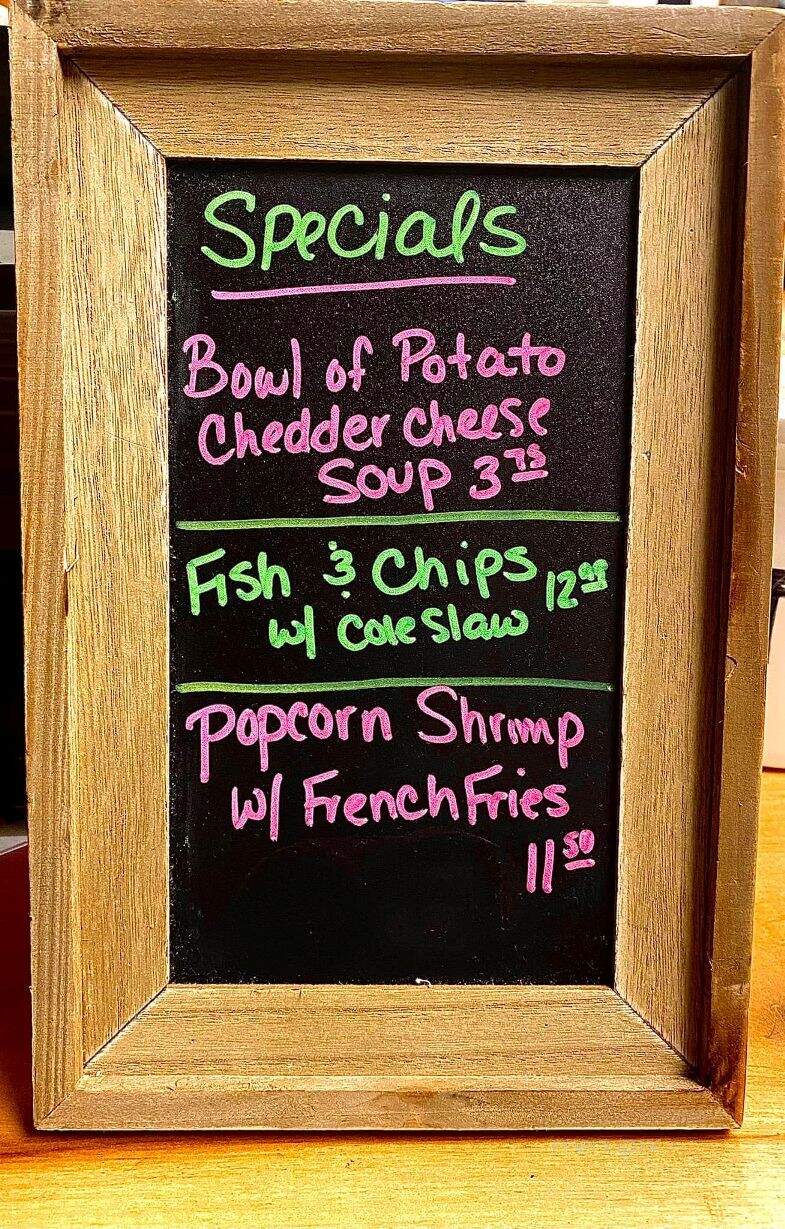 Specials
Bowl of Potato
Chedder cheese
Soup 3 75
Fish & Chips 12 99
w/ coleslaw
Popcorn Shrimp
w/ French Fries
11 50